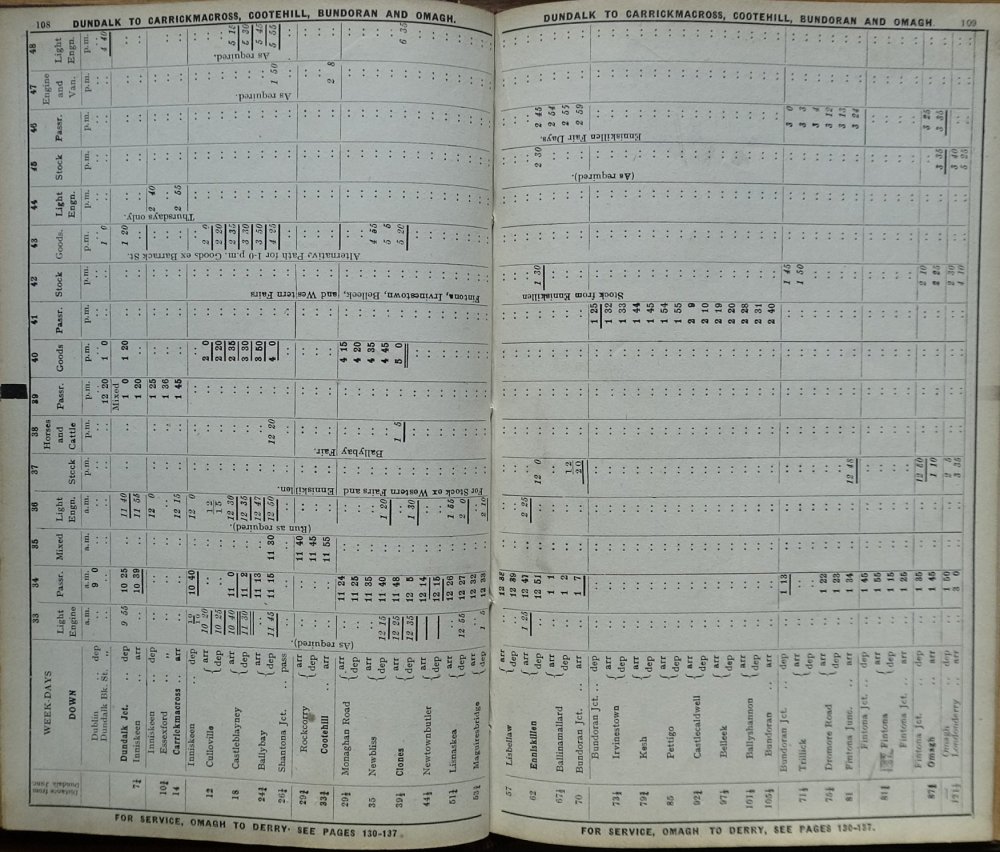 108
DUNDALK TO CARRICKMACROSS, COOTEHILL, BUNDORAN AND OMAGH.
Distance from Dundalk Junc.
WEEK-DAYS
DOWN
Dublin .. dep
Dundalk Bk. St. "
Dundalk Jct. dep
7¼ Inniskeen arr
Inniskeen dep
10¾ Essexford "
14 Carrickmacross .. arr
Inniskeen .. dep
12 Culloville arr dep
18 Castleblayney arr dep
24¼ Ballybay arr dep
26¼ Shantona Jct. .. pass
29¾ Rockcorry arr dep
33¾ Cootehill .. arr
29¼ Monaghan Road arr dep
35 Newbliss arr dep
39½ Clones arr dep
44½ Newtownbutler arr dep
51¼ Lisnaskea arr dep
53¼ Maguiresbridge arr dep
33 Light Engine a.m. 9 55 10 20 10 25 10 40 11 30 11 45 12 15 12 25 12 35 12 55 1 5
(As required).
34 Passr. a.m. 9 0 10 25 10 39 10 40 11 0 11 2 11 13 11 15 11 24 11 25 11 35 11 40 11 48 12 5 12 14 12 15 12 26 12 27 12 32 12 33
35 Mixed a.m. 11 30 11 40 11 45 11 55
36 Light Engn. a.m. 11 40 11 55 12 0 12 15 12 0 12 15 12 30 12 35 12 47 12 50 1 20 1 30 1 55 2 0 2 10
(Run as required).
37 Stock p.m.
For Stock ex Western Fairs and Enniskillen.
38 Horses and Cattle p.m. 12 20 1 5
Ballybay Fair.
39 Passr. p.m. 12 20 Mixed 1 0 1 20 1 25 1 36 1 45
40 Goods p.m. 1 0 1 20 2 0 2 20 2 35 3 30 3 50 4 0 4 15 4 20 4 35 4 45 5 0
41 Passr. p.m.
42 Stock p.m.
Fintona, Irvinestown, Belleek, and Western Fairs
43 Goods. p.m. 1 0 1 20 2 0 2 20 2 35 3 30 3 50 4 25 4 55 5 5 5 20
Alternative Path for 1-0 p.m. Goods ex Barrack St.
44 Light Engn. p.m. 2 40 2 55
Thursdays only.
45 Stock p.m.
46 Passr. p.m.
47 Engine and Van. p.m. 1 50 2 8
As required.
48 Light Engn. p.m. 4 40 5 15 5 30 5 45 5 55 6 35
As required.
FOR SERVICE, OMAGH TO DERRY, SEE PAGES 130-137.
DUNDALK TO CARRICKMACROSS, COOTEHILL, BUNDORAN AND OMAGH.
109
57 Lisbellaw arr dep
62 Enniskillen arr dep
67¼ Ballinamallard arr dep
70 Bundoran Jct. arr dep
Bundoran Jct. .. dep
73¼ Irvinestown arr dep
79¼ Kesh arr dep
85 Pettigo arr dep
92¼ Castlecaldwell arr dep
97¼ Belleek arr dep
101¼ Ballyshannon arr dep
105¼ Bundoran .. arr
Bundoran Jct. .. dep
71¼ Trillick arr dep
75¼ Dromore Road arr dep
81 Fintona Junc. arr
Fintona Jct. .. dep
81¾ Fintona arr dep
Fintona Jct. .. arr
Fintona Jct. .. dep
87¾ Omagh .. arr
Omagh .. dep
121¼ Londonderry .. arr
1 25
12 38 12 39 12 47 12 51 1 1 1 2 1 7 1 13 1 22 1 23 1 34 1 45 1 55 1 15 1 25 1 35 1 45 1 50 3 0
2 25
12 0 12 20 12 48 12 50 1 10 2 5 3 35
1 25 1 32 1 33 1 44 1 45 1 54 1 55 2 9 2 10 2 19 2 20 2 28 2 31 2 40
1 30 1 45 1 50 2 10 2 25 2 30 4 10
Stock from Enniskillen
2 30 3 35 3 40 5 25
(As required).
2 45 2 54 2 55 2 59 3 0 3 3 3 4 3 12 3 13 3 24 3 25 3 35
Enniskillen Fair Days.
FOR SERVICE, OMAGH TO DERRY, SEE PAGES 130-137.